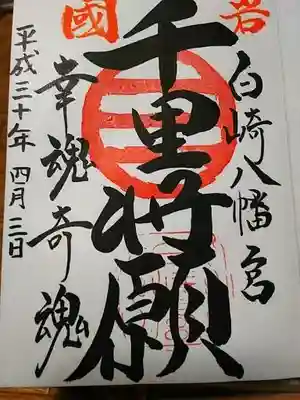 岩國
白崎八幡宮
千里将願
幸魂奇魂
平成三十年 四月三日